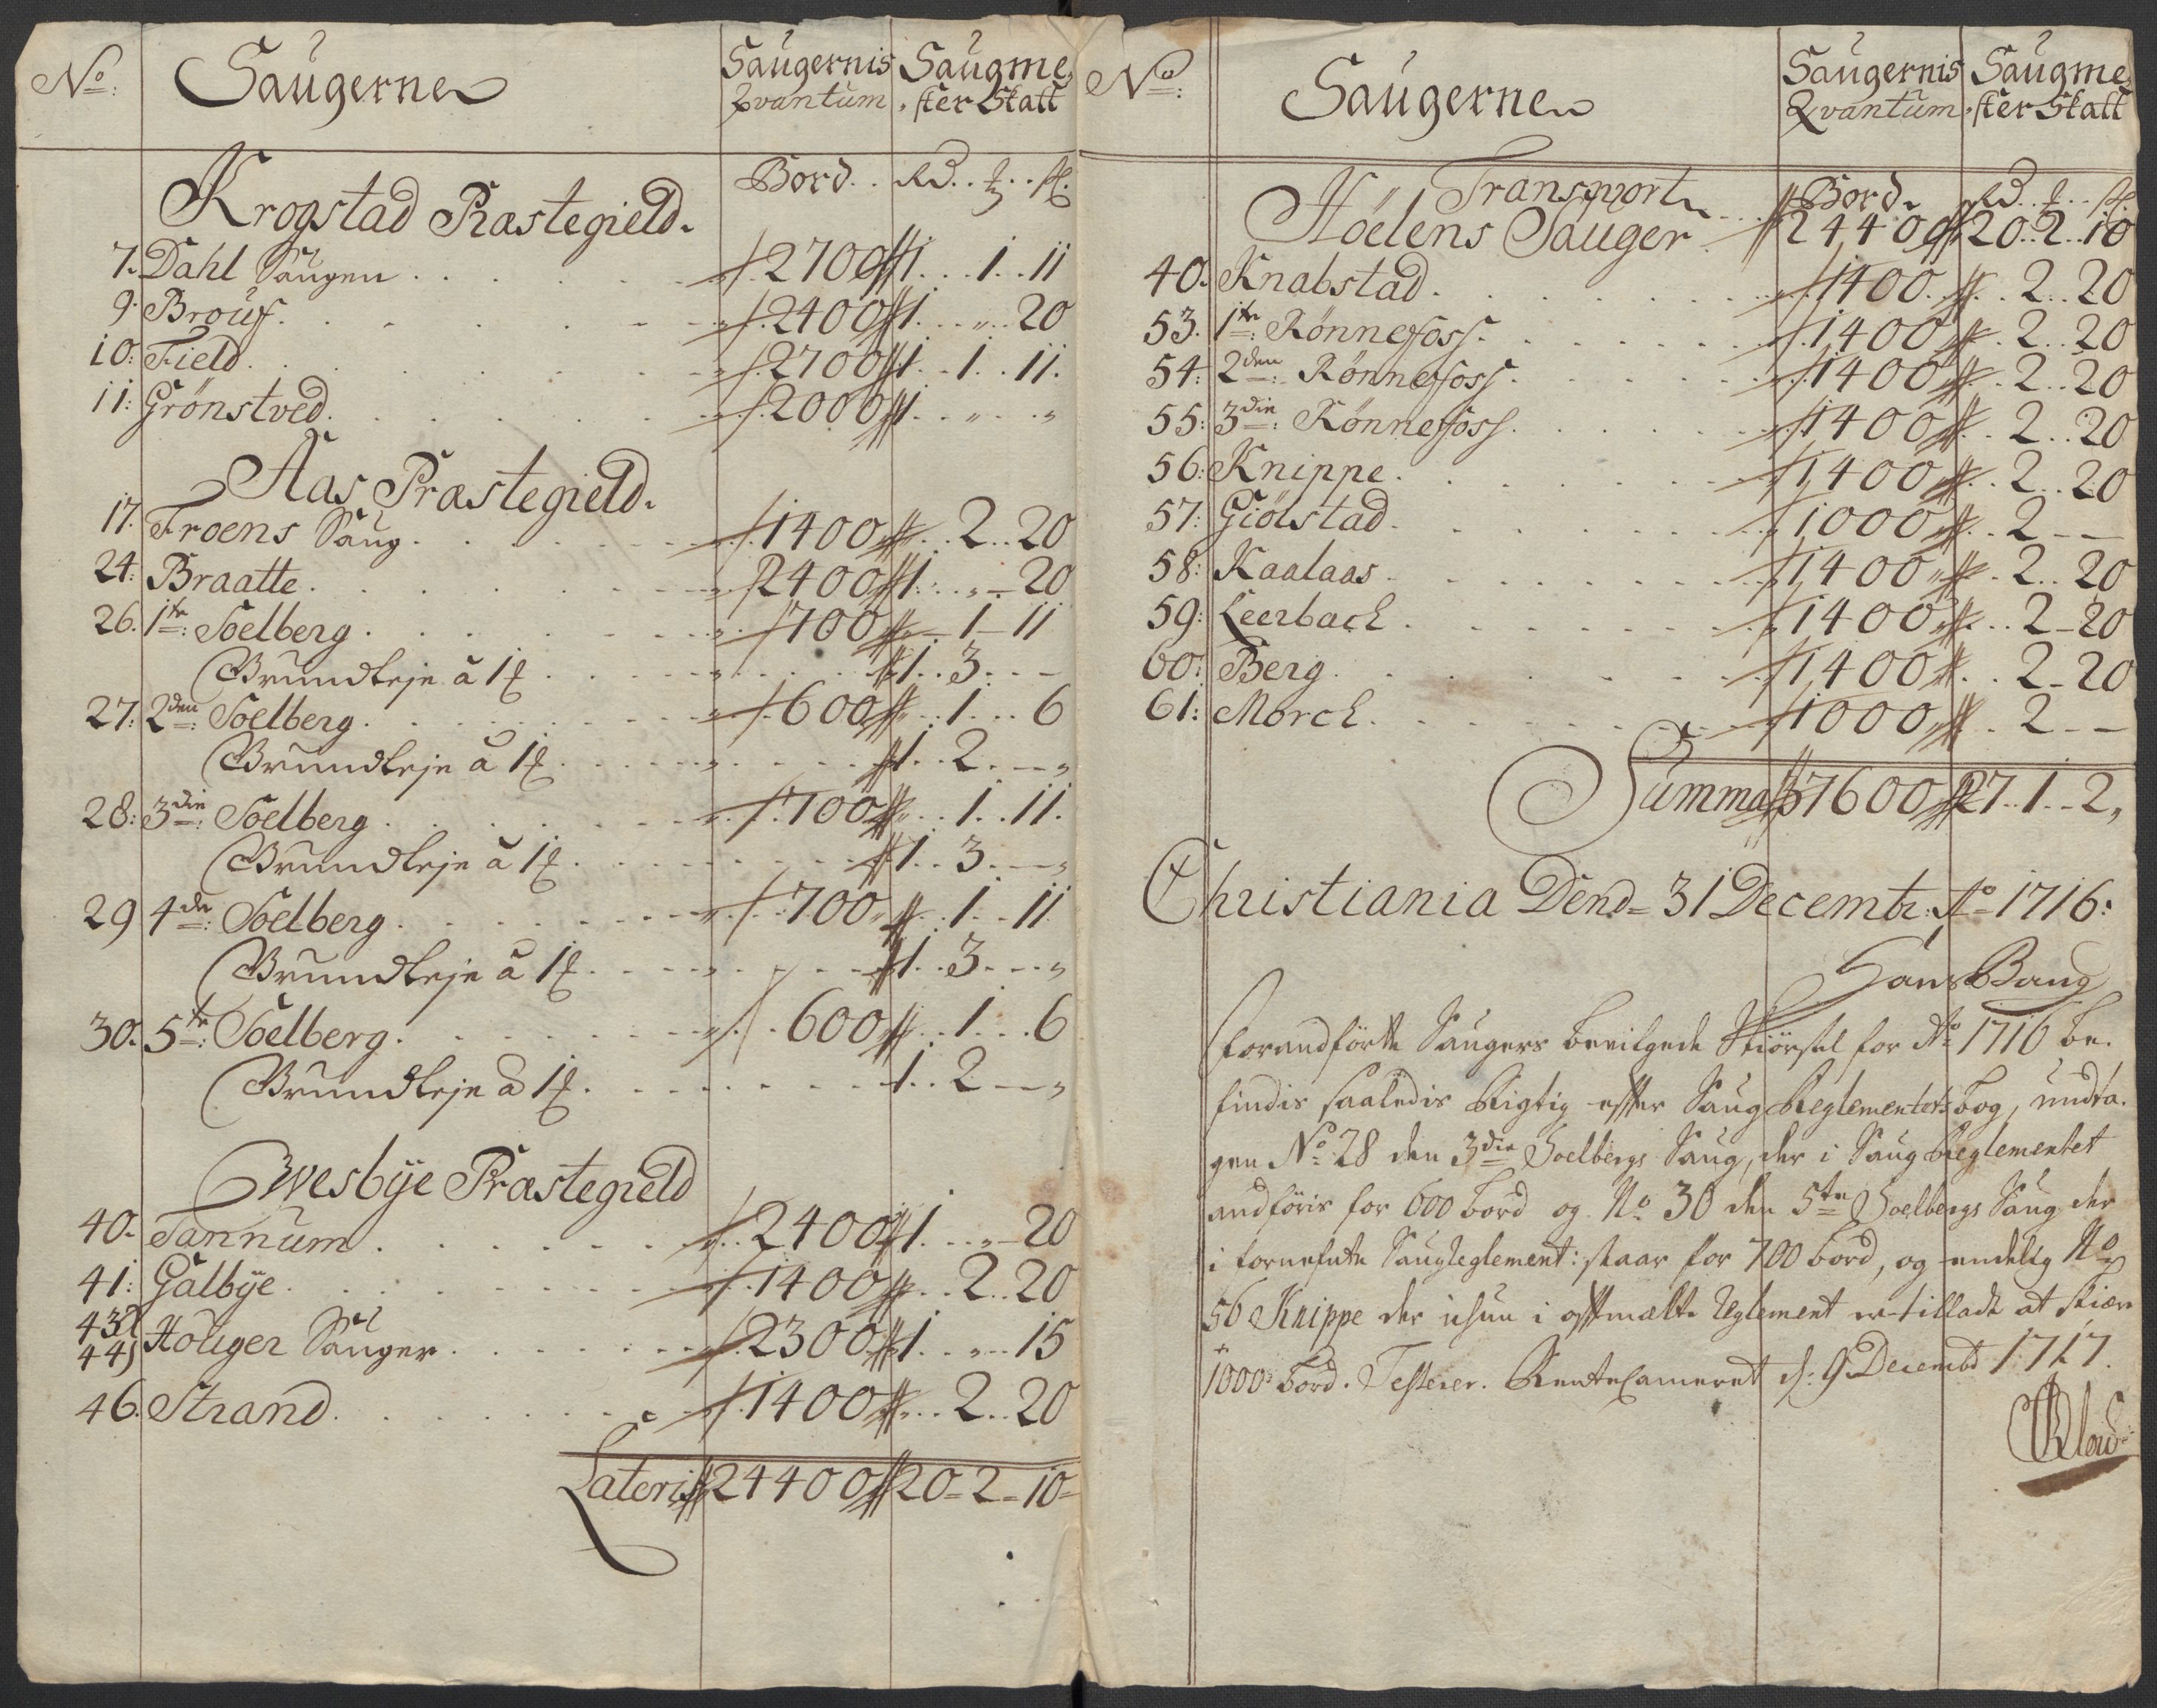 No: Saugerne Saugernis Qvantum Saugmester Skatt
Krogstad Præstegield. Bord. Rd. ƶ. ſk.
7. Dahl Saugen 2700 1. 1. 11
9. Brouf. 2400 1. „. 20
10: Field. 2700 1. 1. 11.
11: Grönstved. 2000 1. „. „
Aas Præstegield.
17. Froens Saug. 1400 2. 20
24: Braatte. 2400 1. „. 20
26. 1te: Soelberg. 700 1 - 11
Grundleje â 1 1. 3. -
27: 2den: Soelberg. 600 1. 6
Grundleje â 1 1. 2. - „
28: 3die: Soelberg 700 1. 11.
Grundleje â 1 1. 3. - „
29 4de: Soelberg. 700 1. 11
Grundleje â 1 1. 3. - „
30. 5te: Soelberg. 600 1. 6
Grundleje â 1 1. 2 - „
Wesbÿe Præstegield
40. Sannum. 2400 1. „. 20
41: Galbÿe. 1400 2. 20
43
44) Höuger Sauger. 2300 1. „. 15
46. Strand. 1400 2. 20
Lateris 24400 20 = 2 = 10 =
No: Saugerne Saugernis Qvantum Saugmester Skatt
Transport Bord. Rd.
Höelens Sauger 24400 20. 2. 10
40. Knabstad. 1400. 2. 20
53. 1te: Rönnefoss. 1400 2. 20
54: 2den: Rönnefoss. 1400 2. 20
55: 3die: Rönnefoss. 1400 2. 20
56: Knippe. 1400 2. 20
57: Giölstad. 1000 2 - -
58: Kaalaas. 1400 2. 20
59: Leerbach. 1400 2 - 20
60: Berg. 1400 2 - 20
61: Morch. 1000 2 - -
Summa 37600 27. 1. 2,
Christiania Dend= 31 Decembr: Ao 1716:
Hans Bang
forandförte Saugers bevilgede Skiörsel for Ao 1716 be-
findis saaledis Rigtig efter Saug Reglementets bog, undta-
gen No. 28 den 3die Soelbergs Saug, der i Saug Reglementet
andföris for 600 bord og No 30 den 5te Soelbergs Saug der
i bornefnte Saugreglement: staar for 700 bord, og endelig No
56 Knippe der ichun i offtmælte Reglement er tilladt at skiære
1000 bord. Testerer. RenteCameret d: 9 Decembr 1717.